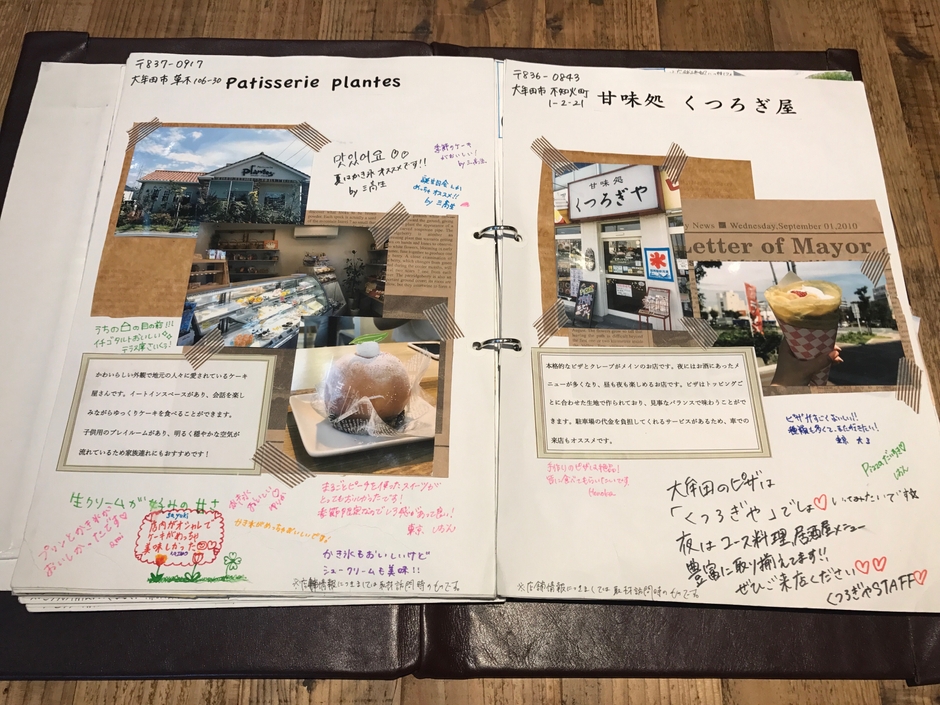 〒837-0917
大牟田市 草木106-30
Patisserie plantes
맛있어요
夏はかき氷オススメです!!
by 三高生
季節のケーキ
がおいしい!
by 三高生
plantes
うちの
の目の前!!!
イチゴタルトおいしい
テラス席さいこう!
かわいらしい外観で地元の人々に愛されているケーキ
屋さんです。イートインスペースがあり、会話を楽し
みながらゆっくりケーキを食べることができます。
子供用のプレイルームがあり、明るく穏やかな空気が
流れているため家族連れにもおすすめです!
生クリームが好みの甘さ
プリンとかき氷が
おいしかったです
店内がオシャレで
ケーキがめっちゃ
美味しかった
かき氷がめっちゃおいしいです!
まるごとピーチを使ったスイーツが
とってもおいしかったです!
東京
かき氷もおいしいけど
シュークリームも美味!!
※店舗情報につきましては取材訪問時のものです。
〒836-0843
大牟田市 不知火町
1-2-21
甘味処 くつろぎ屋
甘味処
くつろぎや
氷
y News ■ Wednesday,September 01,2010
Letter of Mayor
本格的なピザとクレープがメインのお店です。夜にはお酒にあったメ
ニューが多くなり、昼も夜も楽しめるお店です。ピザはトッピングご
とに合わせた生地で作られており、見事なバランスで味わうことがで
きます。駐車場の代金を負担してくれるサービスがあるため、車での
来店もオススメです。
ピザがすごくおいしい!!
手作りのピザは絶品!
Pizzaだいすき♡
大牟田のピザは
「くつろぎや」でしょ♡
いってみたいです☆
夜はコース料理、居酒屋メニュー
豊富に取り揃えてます!!
ぜひご来店ください♡♡
くつろぎやSTAFF♡
※店舗情報につきましては取材訪問時のものです。